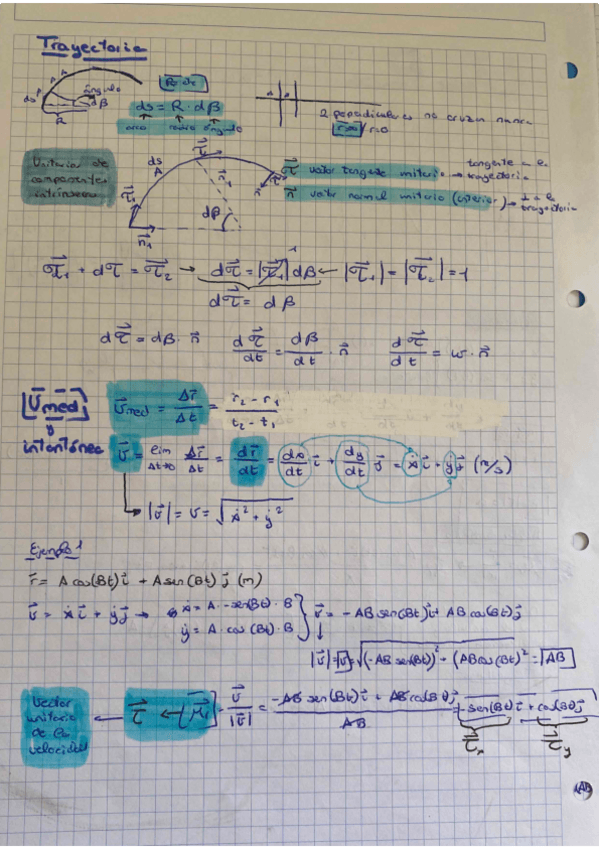 Trayectoria
ángulo
ds
dβ
R
ds = R · dβ
arco radio ángulo
2 perpendiculares no cruzan nunca
r=∞ / r=0
Unitaria de
componentes
intrínsecas
ds
A
dβ
n⃗₁
τ⃗ vector tangente unitario → tangente a la trayectoria
n⃗ vector normal unitario (interior) → ⊥ a la trayectoria
τ⃗₁ + dτ⃗ = τ⃗₂ → dτ⃗ = |τ⃗₁| dβ ← |τ⃗₁| = |τ⃗₂| = 1
dτ⃗ = dβ
dτ⃗ = dβ · n⃗ dτ⃗/dt = dβ/dt · n⃗ dτ⃗/dt = ω · n⃗
v⃗med
y
instantánea
v⃗med = Δr⃗/Δt = r₂ - r₁/t₂ - t₁
v⃗ = lim Δt→0 Δr⃗/Δt = dr⃗/dt = dx/dt i⃗ + dy/dt j⃗ = ẋ i⃗ + ẏ j⃗ (m/s)
|v⃗| = v = √ẋ² + ẏ²
Ejemplo 1
r⃗ = A cos(Bt) i⃗ + A sen(Bt) j⃗ (m)
v⃗ = ẋ i⃗ + ẏ j⃗ → ẋ = A · -sen(Bt) · B } v⃗ = -AB sen(Bt) i⃗ + AB cos(Bt) j⃗
ẏ = A · cos(Bt) · B
|v⃗| = v = √(-AB sen(Bt))² + (AB cos(Bt))² = AB
Vector
unitario
de la
velocidad
← τ⃗ ← μ⃗ = v⃗/|v⃗| = -AB sen(Bt) i⃗ + AB cos(Bt) j⃗/AB = -sen(Bt) i⃗ + cos(Bt) j⃗
τ⃗x τ⃗y